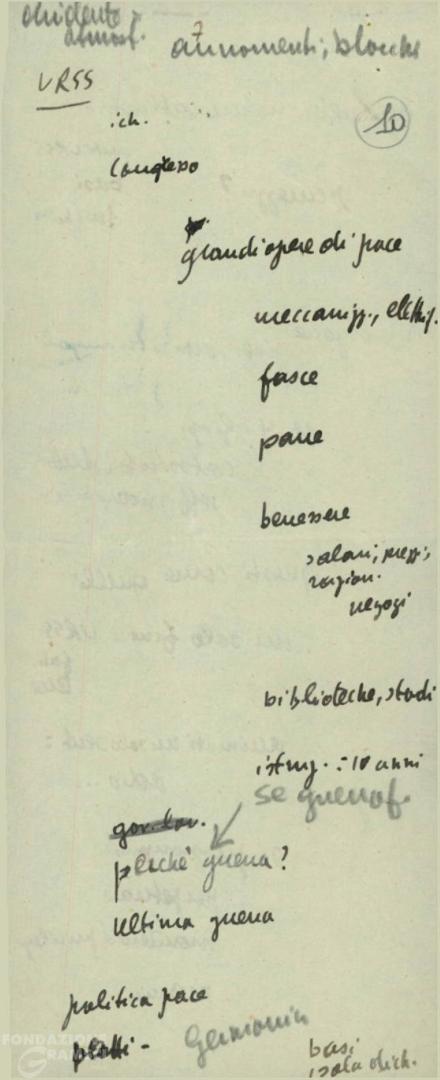 atmosf.
armamenti, blocchi
URSS
10
ich.
Congresso
grandi opere di pace
meccanizz., elettrif.
fasce
pane
benessere
salari, prezzi,
razion.
negozi
biblioteche, stadi
istruz. : 10 anni
se guerraf.
gov. lav.
perchè guerra?
Ultima guerra
politica pace
patti - Germania
basi
isola dich.
FONDAZIONE
GRAM